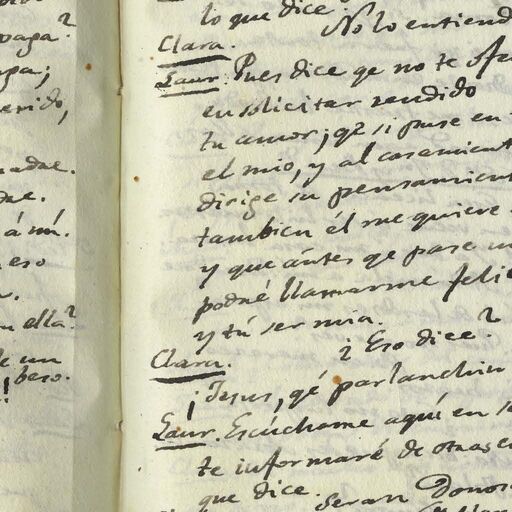 paga?
apa;
erido,
adae.
dae.
á mí.
eso
n ella?
de un
beso.
lo que dice.
No lo entiend
Clara.
Laur. Pues dice qe no te ofen
en solicitar rendido
tu amor; qe si puse en
el mio, y al casamient
dirige su pensamient
tambien él me quiere
y que ántes qe pase un
podré llamarme feli
y tú ser mia.
¿Eso dice?
Clara.
¡Jesus, qé parlanchin
Laur. Escúchame aquí en s
te informaré de otras
que dice.
Seran Donos